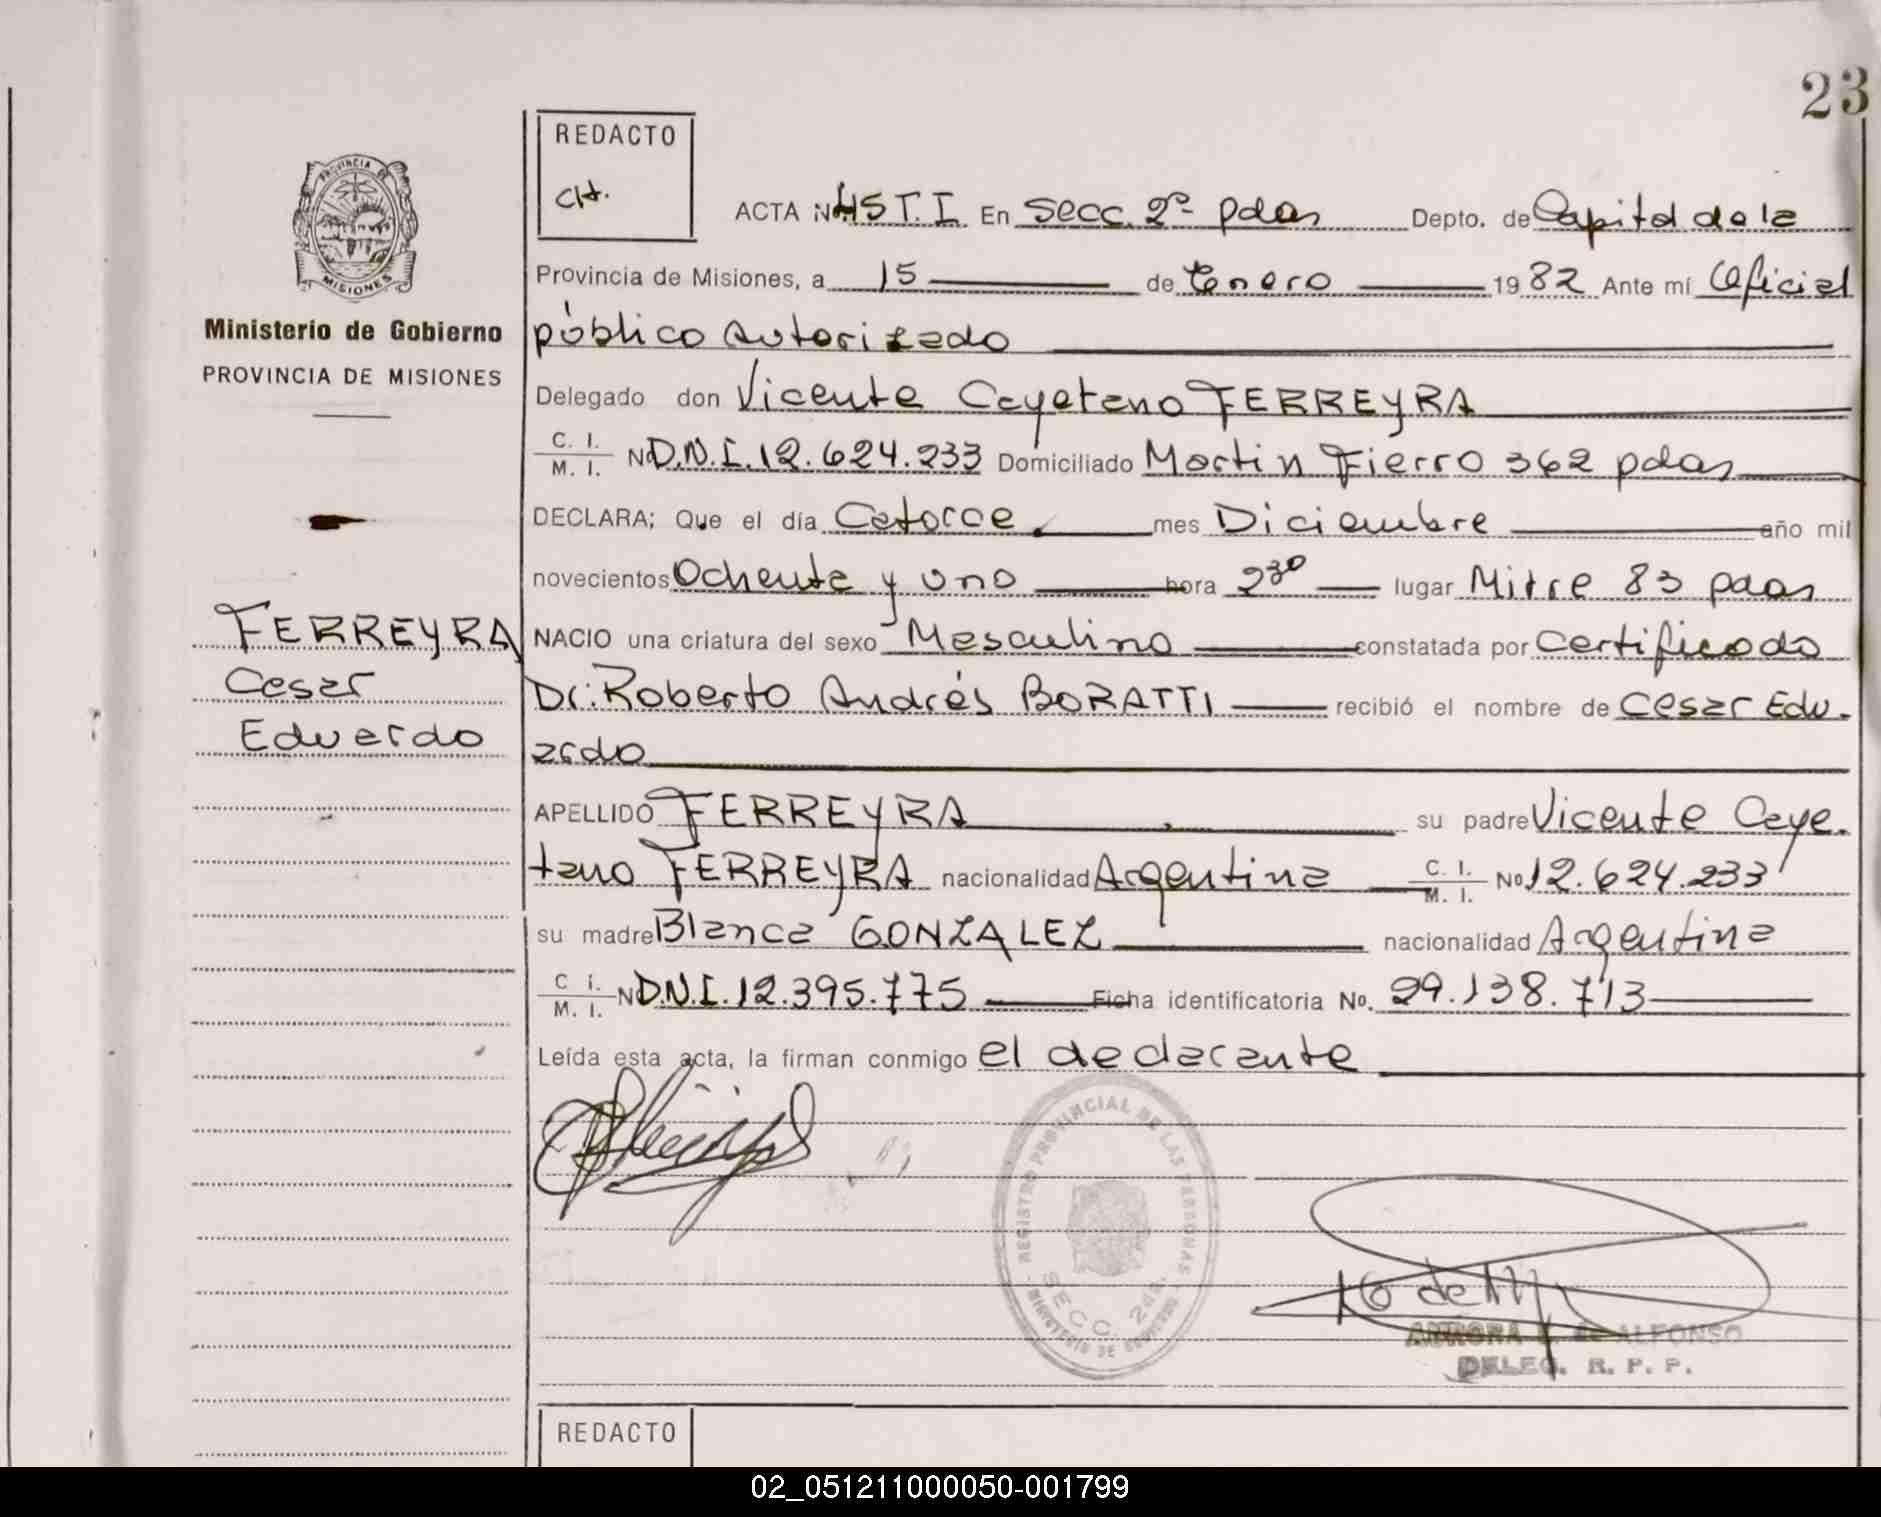 23
REDACTO
CH.
PROVINCIA DE
MISIONES
ACTA Nº 45 T. I En Secc. 2ª Pdas Depto. de Capital de la
Provincia de Misiones, a 15 de Enero 1982 Ante mí Oficial
Ministerio de Gobierno
público autorizado
PROVINCIA DE MISIONES
Delegado don Vicente Cayetano FERREYRA
C. I.
M. I. Nº D.N.I. 12.624.233 Domiciliado Martin Fierro 362 pdas
DECLARA; Que el día Catorce mes Diciembre año mil
novecientos Ochenta y uno hora 2³⁰ lugar Mitre 83 pdas
FERREYRA
NACIO una criatura del sexo Masculino constatada por Certificado
Cesar
Dr: Roberto Andrés BORATTI recibió el nombre de Cesar Edu-
Eduardo
ardo
APELLIDO FERREYRA su padre Vicente Caye-
tano FERREYRA nacionalidad Argentina C. I. M. I. Nº 12.624.233
su madre Blanca GONZALEZ nacionalidad Argentina
C. I.
M. I. Nº D.N.I. 12.395.775 Ficha identificatoria No. 29.138.713
Leída esta acta, la firman conmigo el declarante
REGISTRO PROVINCIAL DE LAS PERSONAS
SECC. 2da.
MINISTERIO DE GOBIERNO
AURORA de ALFONSO
DELEG. R. P. P.
REDACTO
02_051211000050-001799